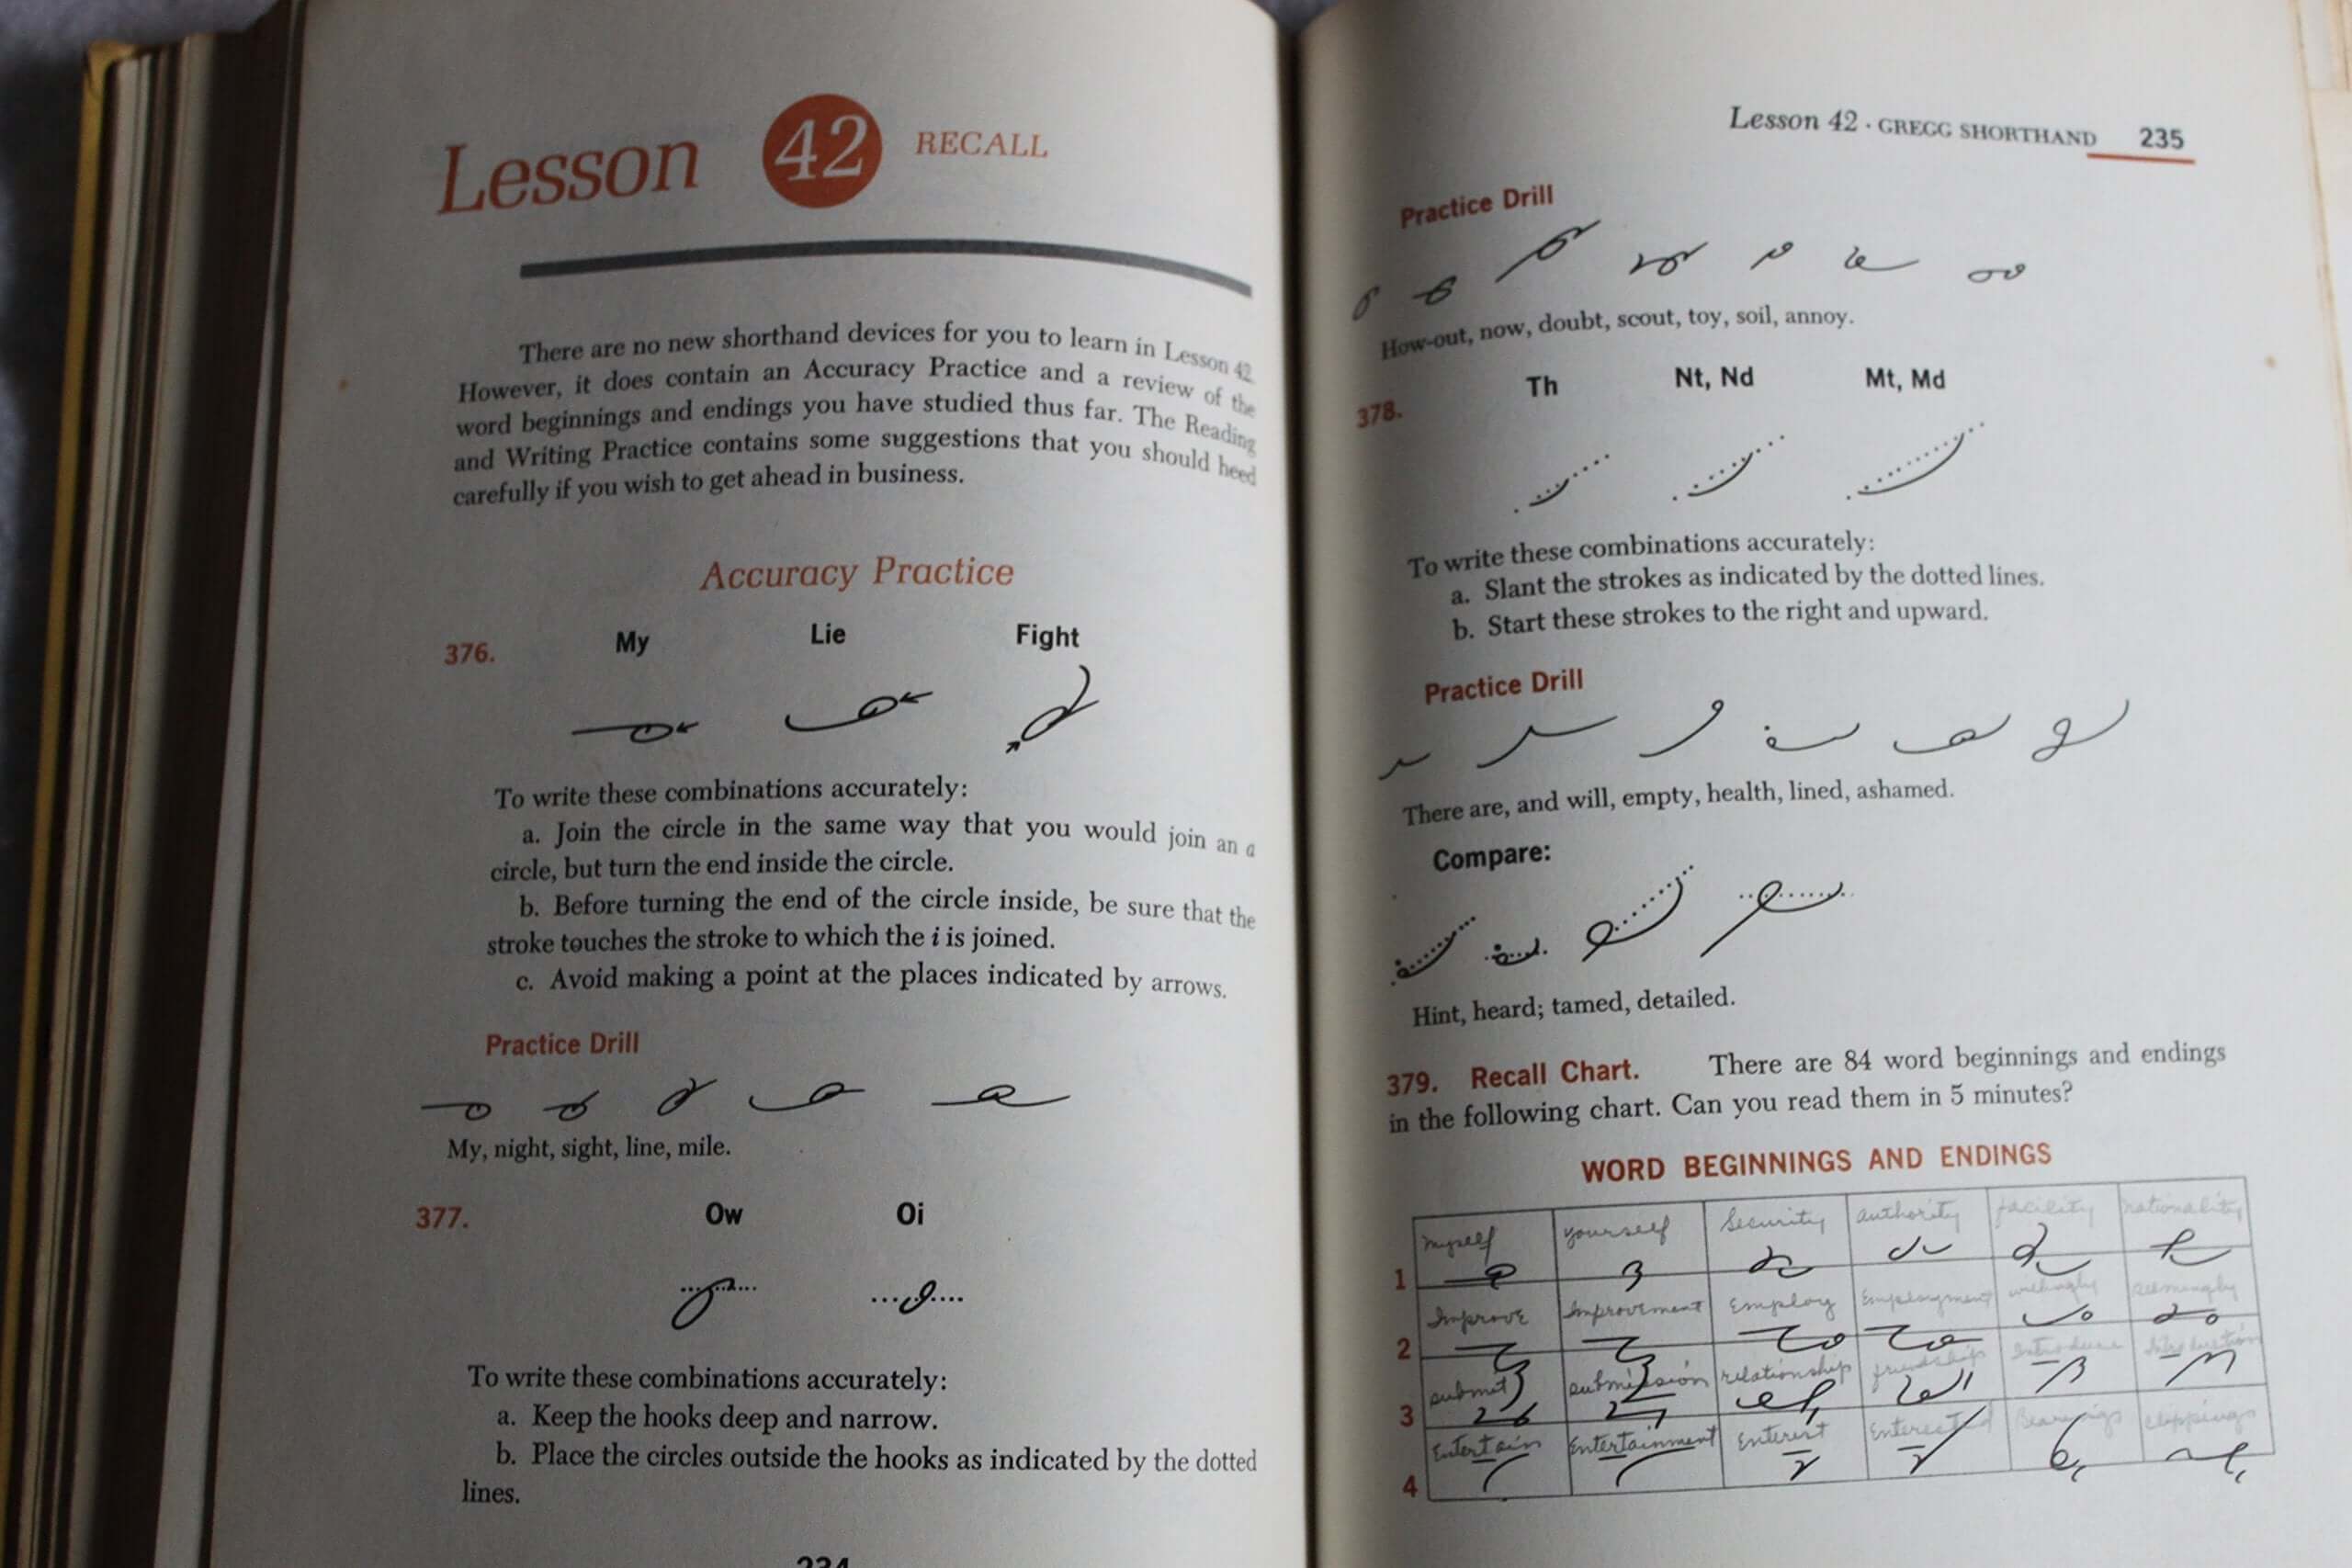 Lesson 42 RECALL
There are no new shorthand devices for you to learn in Lesson 42.
However, it does contain an Accuracy Practice and a review of the
word beginnings and endings you have studied thus far. The Reading
and Writing Practice contains some suggestions that you should heed
carefully if you wish to get ahead in business.
Accuracy Practice
376. My Lie Fight
To write these combinations accurately:
a. Join the circle in the same way that you would join an a
circle, but turn the end inside the circle.
b. Before turning the end of the circle inside, be sure that the
stroke touches the stroke to which the i is joined.
c. Avoid making a point at the places indicated by arrows.
Practice Drill
My, night, sight, line, mile.
377. Ow Oi
To write these combinations accurately:
a. Keep the hooks deep and narrow.
b. Place the circles outside the hooks as indicated by the dotted
lines.
234
Lesson 42 · GREGG SHORTHAND 235
Practice Drill
How-out, now, doubt, scout, toy, soil, annoy.
378. Th Nt, Nd Mt, Md
To write these combinations accurately:
a. Slant the strokes as indicated by the dotted lines.
b. Start these strokes to the right and upward.
Practice Drill
There are, and will, empty, health, lined, ashamed.
Compare:
Hint, heard; tamed, detailed.
379. Recall Chart. There are 84 word beginnings and endings
in the following chart. Can you read them in 5 minutes?
WORD BEGINNINGS AND ENDINGS
myself yourself Security authority facility nationality
1
Improve Improvement Employ Employment willingly seemingly
2
submit submission relationship friendship Introduce Introduction
3
Entertain Entertainment Enterist Enterested Bearings clippings
4